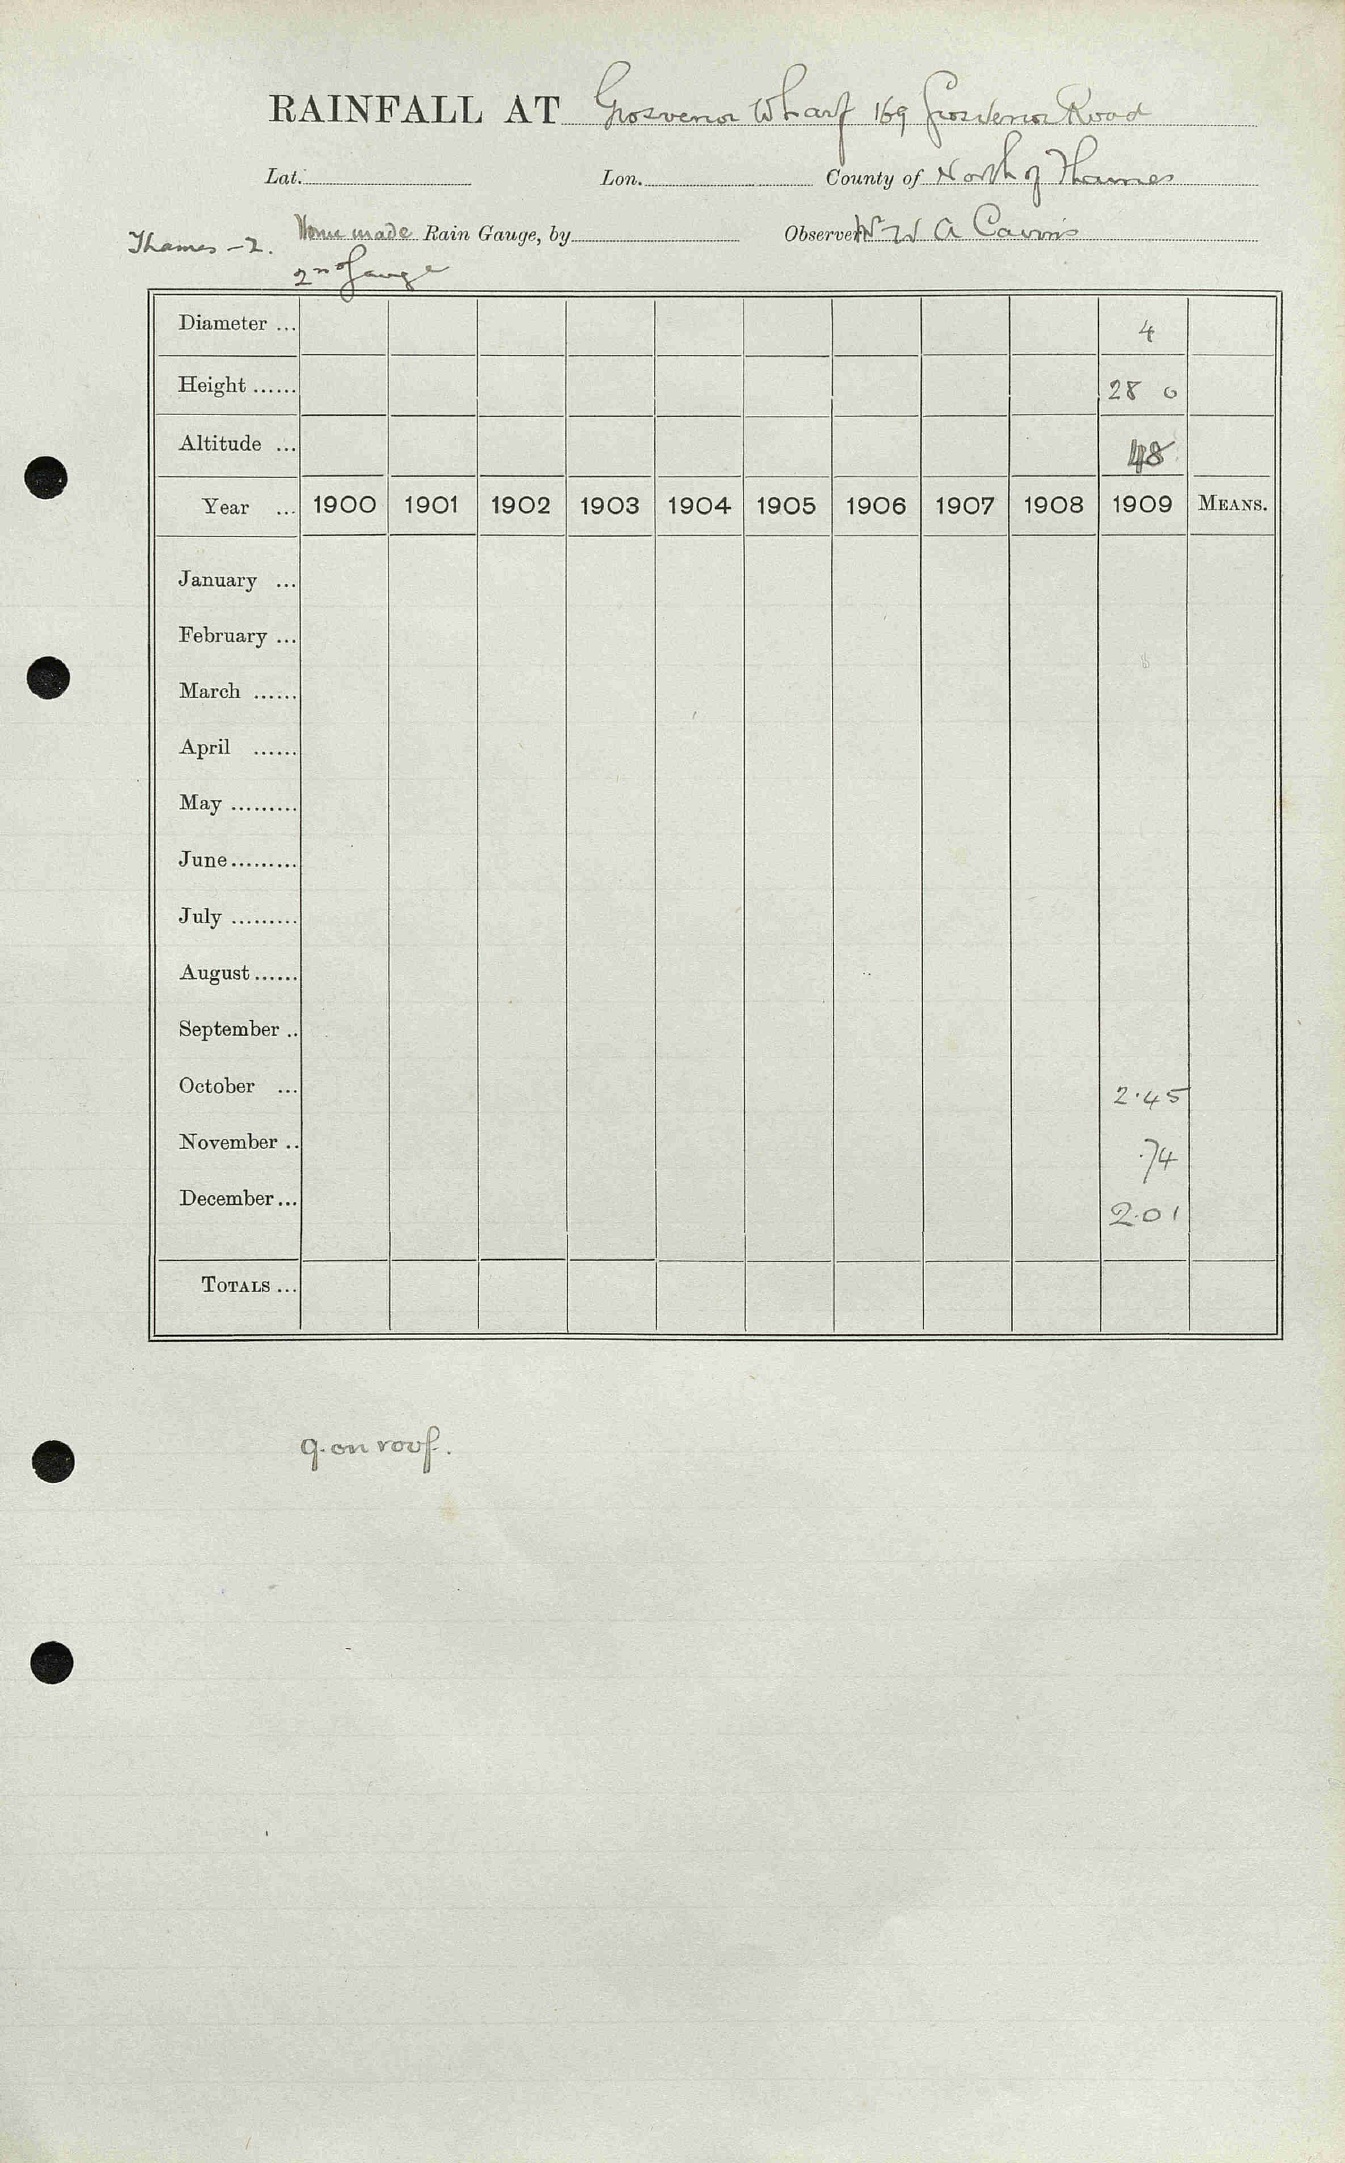 RAINFALL AT Grosvenor Wharf 169 Grosvenor Road
Lat. Lon. County of North of Thames
Thames - 2. Home made Rain Gauge, by Observer W A
2nd Gauge
Diameter ... 4
Height ...... 28 0
Altitude ... 48
Year ... 1900 1901 1902 1903 1904 1905 1906 1907 1908 1909 MEANS.
January ...
February ...
March ......
April ......
May .........
June .........
July .........
August ......
September ..
October ... 2.45
November .. .74
December ... 2.01
TOTALS ...
g. on roof.